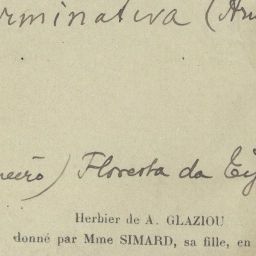 rminativa (Ar
neiro) Floresta da Tij
Herbier de A. GLAZIOU
donné par Mme SIMARD, sa fille, en